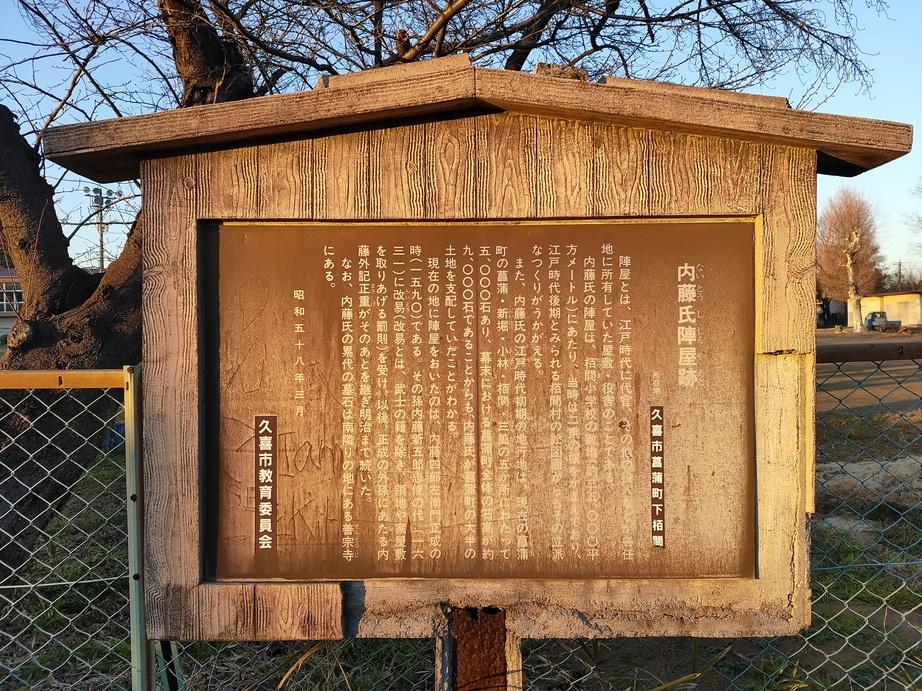 内藤氏陣屋跡
ないとうしじんやあと
久喜市菖蒲町下栢間
陣屋とは、江戸時代に代官
地に所有していた屋敷・役舎のことである。
内藤氏の陣屋は、栢間小学校の
〇〇〇平
方メートル)にあたり、当時は
江戸時代後期とみられる栢間村の
の立派
なつくりがうかがえる。
また、内藤氏の江戸時代初期の知行地は、現在の菖蒲
町の菖蒲・新堀・小林・栢間・三箇の五か所にわたって
五、〇〇〇石あり、幕末における
が約
九、〇〇〇石であることからも、内藤氏が菖蒲町の大半の
土地を支配していたことがわかる。
現在の地に陣屋をおいたのは、内藤四郎左衛門正成の
時(一五九〇)である。その孫内藤新五郎忠俊の代(一六
三一)に改易(改易とは、武士の籍を除き、領地や家屋敷
を取りあげる罰則)を受け、以後、正成の外孫にあたる内
藤外記正重がそのあとを継ぎ明治まで続いた。
なお、内藤氏の累代の墓石は南隣りの地にある善宗寺
にある。
昭和五十八年三月
久喜市教育委員会